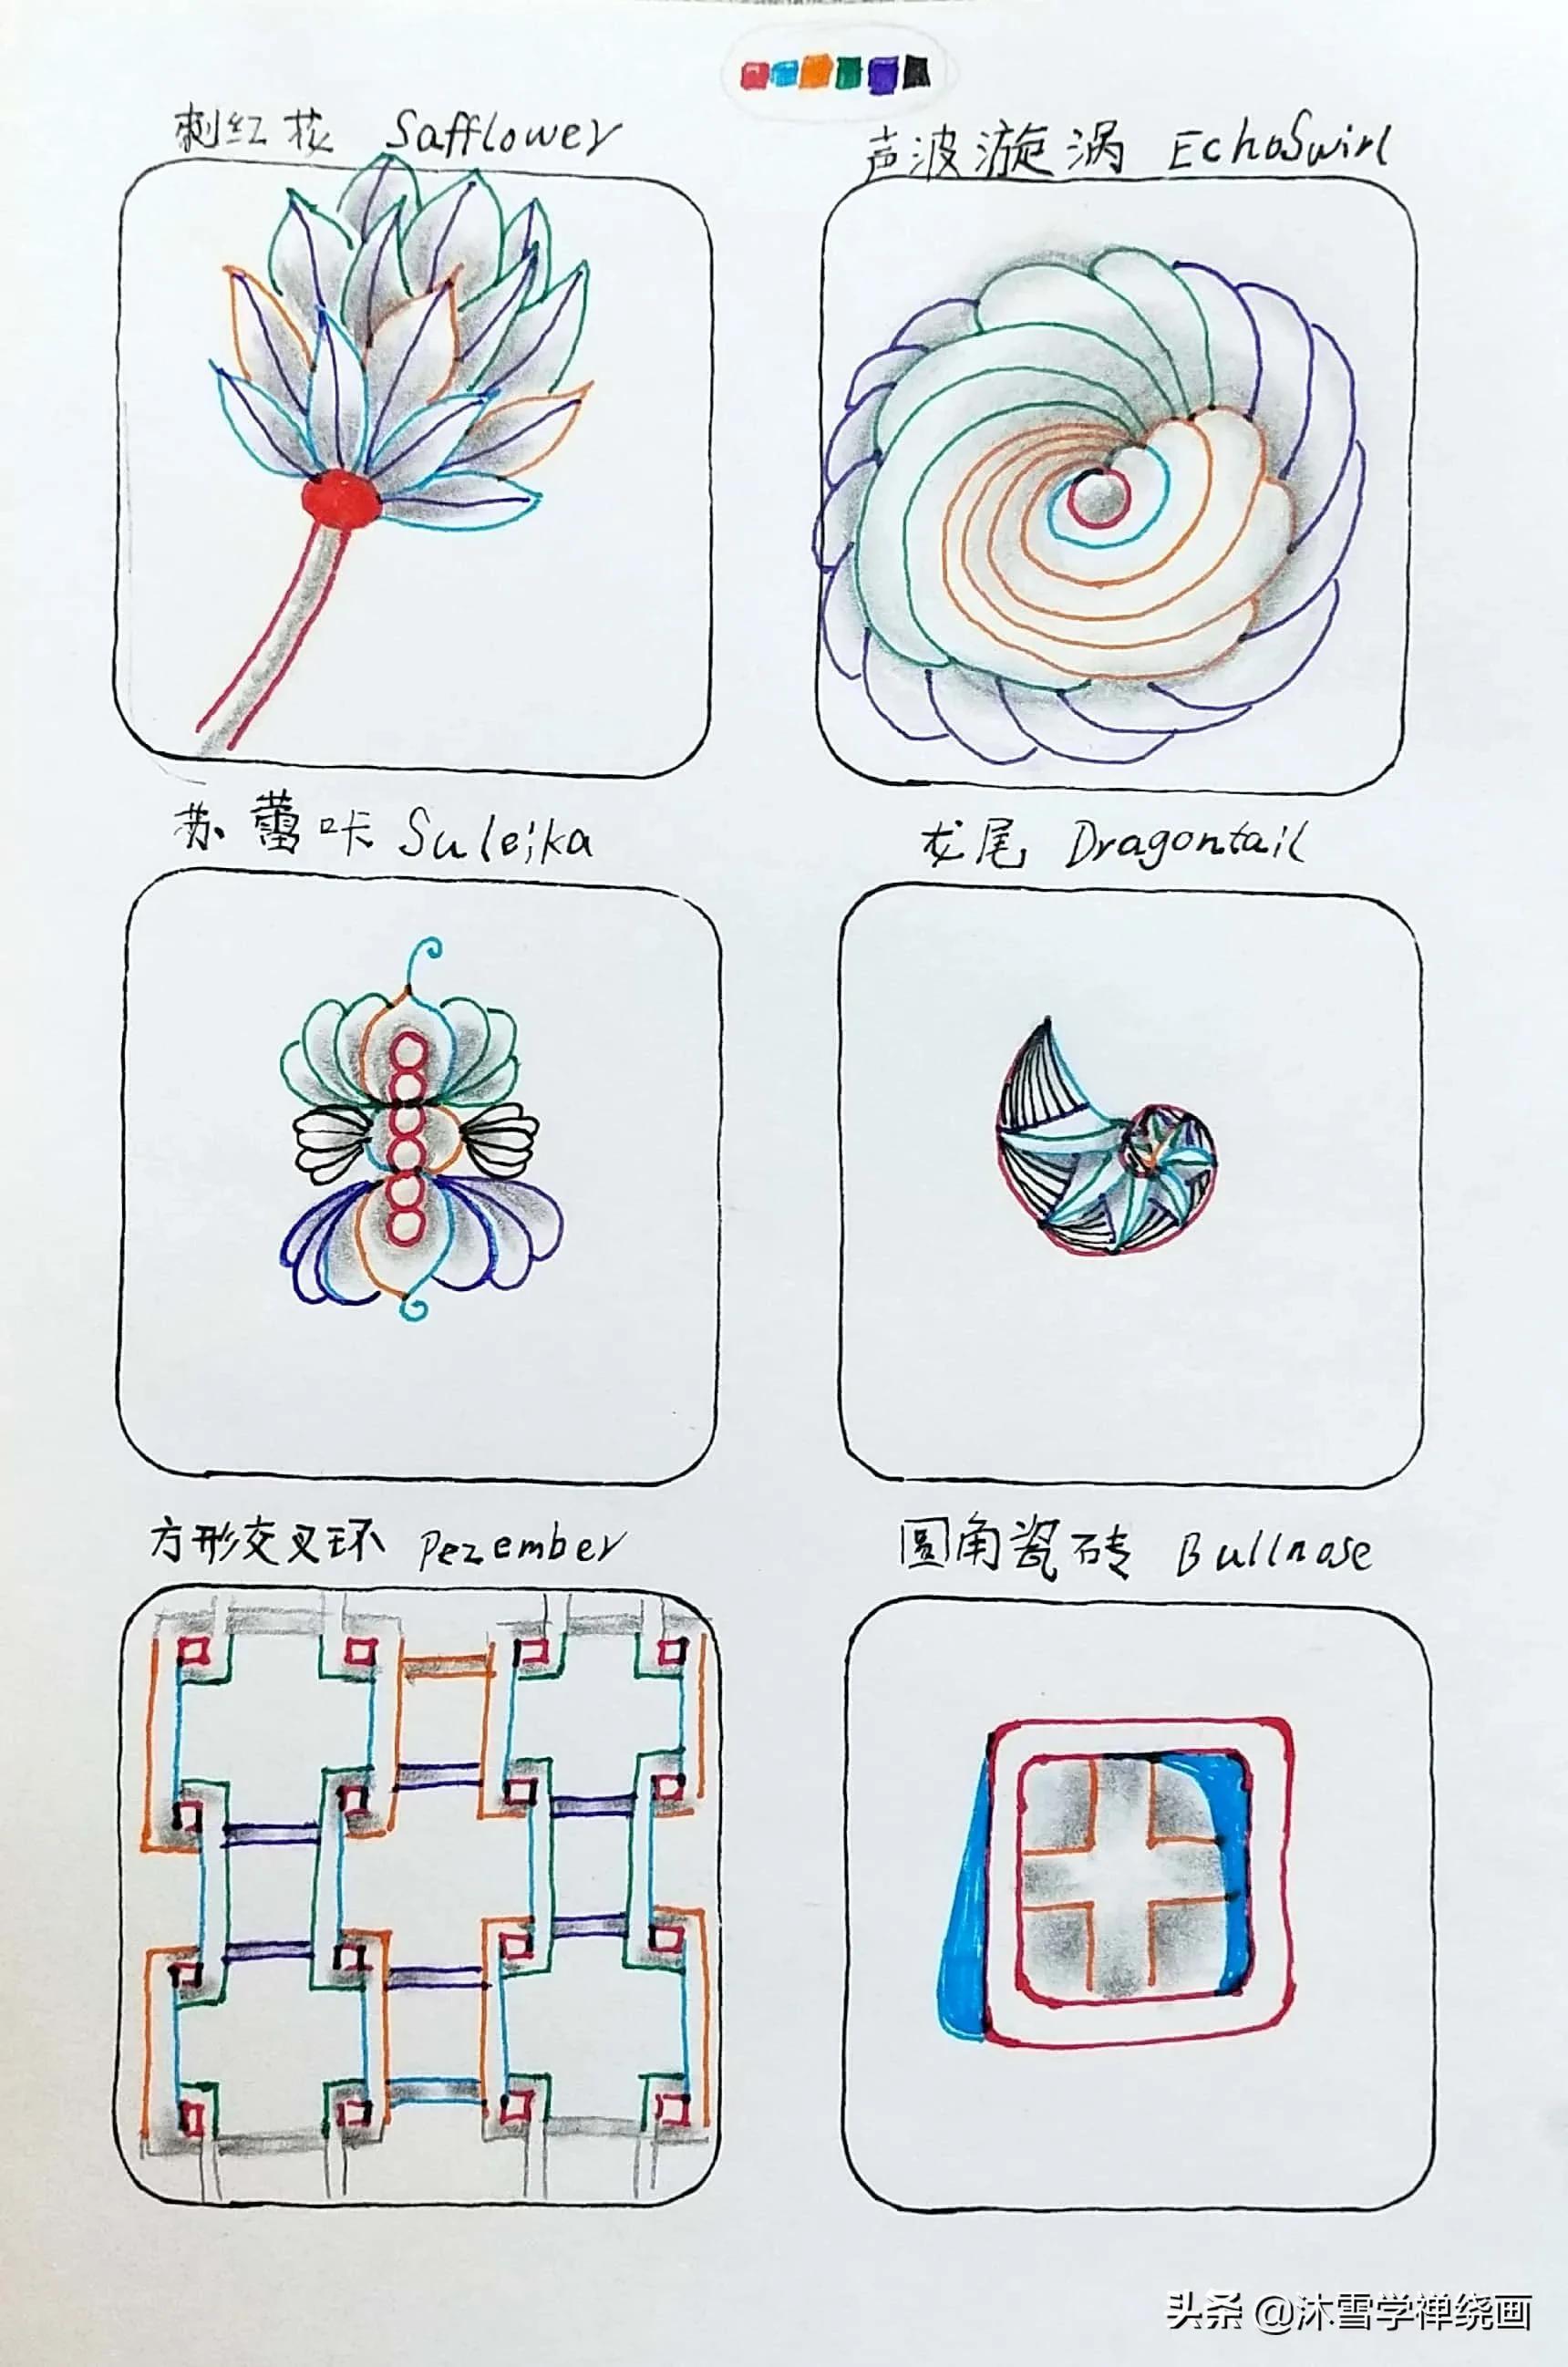 刺红花 Safflower
声波漩涡 EchoSwirl
苏蕾咔 Suleika
龙尾 Dragontail
方形交叉环 Pezember
圆角瓷砖 Bullnose
头条 @沐雪学禅绕画